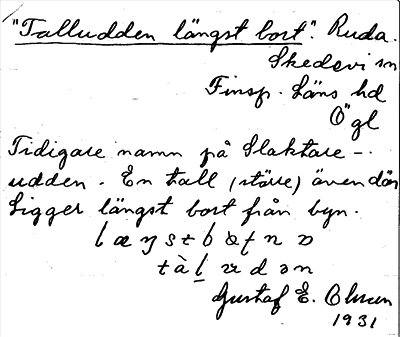 "Talludden längst bort". Ruda.
Skedevi sn
Finsp. Läns hd
Ögl
Tidigare namn på Slaktare-
udden. En tall (större) även där
Ligger längst bort från byn.
Gustaf E. Olsson
1931